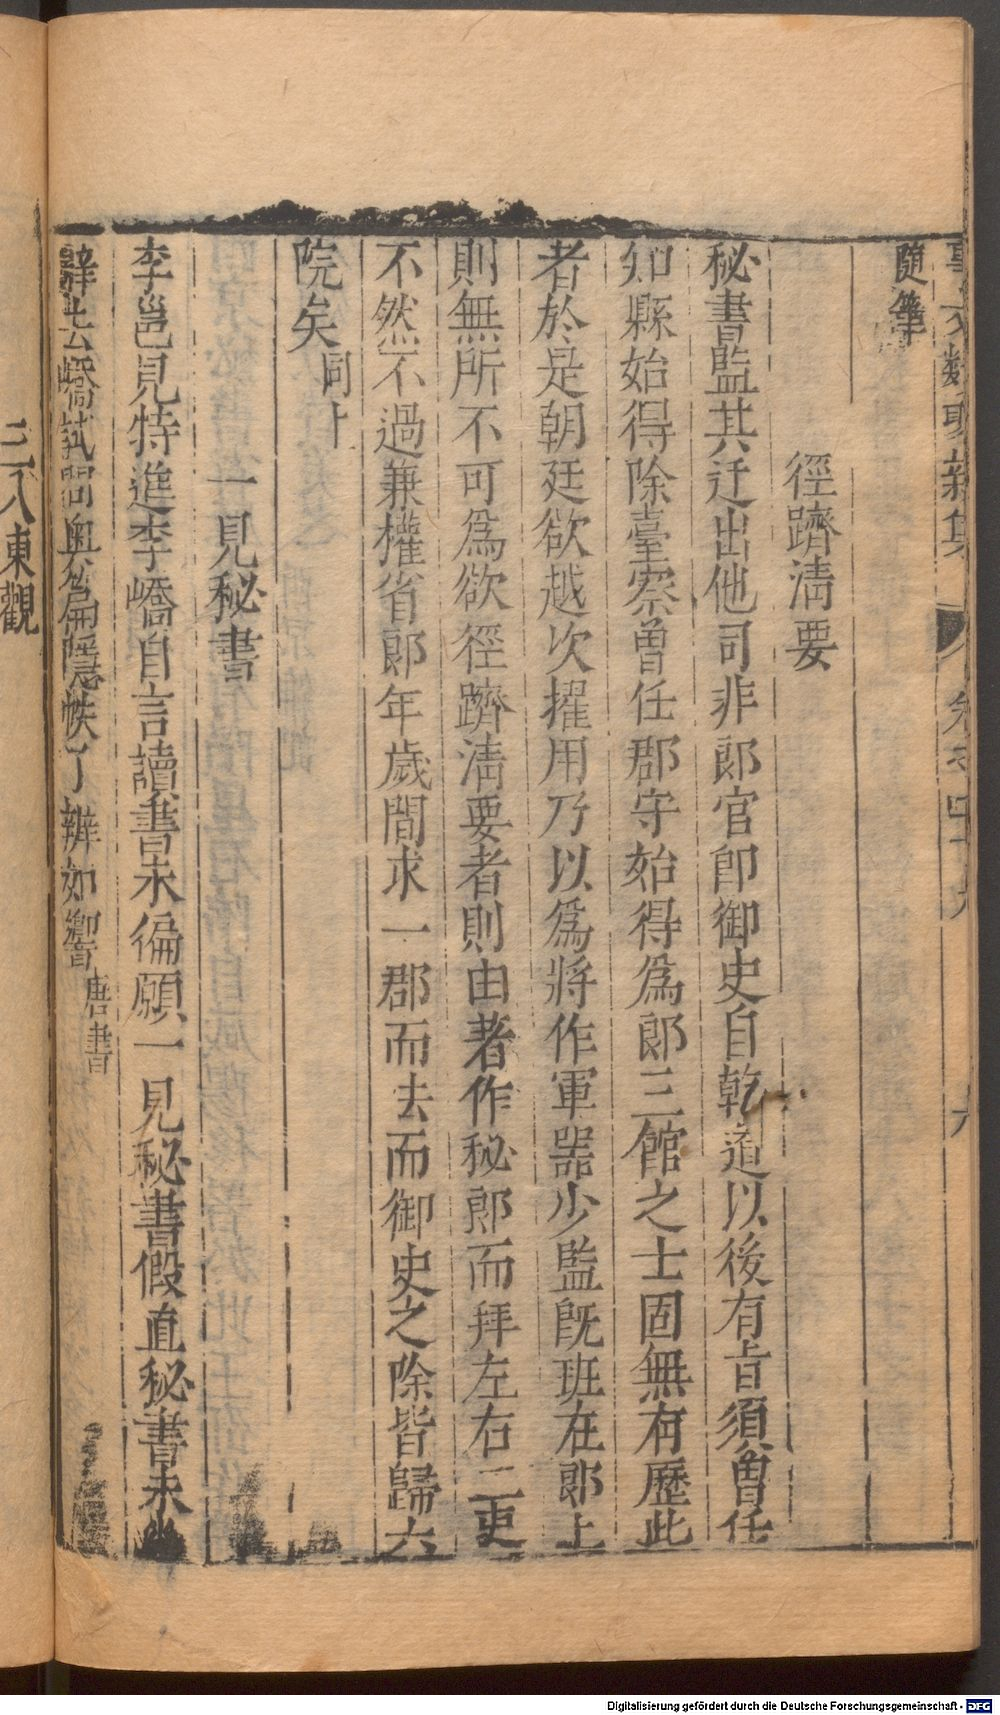 事文類聚新集
隨筆
徑躋清要
秘書監其迁出他司非郎官即御史自乾道以後有旨須曾任
知縣始得除臺察曾任郡守始得爲郎三館之士固無有歷此
者於是朝廷欲越次擢用乃以爲將作軍噐少監旣班在郎上
則無所不可爲欲徑躋清要者則由著作秘郎而拜左右二吏
不然不過兼權省郎年歲間求一郡而去而御史之除皆歸六
院矣同十
一見秘書
李邕見特進李嶠自言讀書未徧願一見秘書假直秘書未幾
辭去嶠試問奥篇隱帙了辨如響唐書
三入東觀
Digitalisierung gefördert durch die Deutsche Forschungsgemeinschaft - DFG